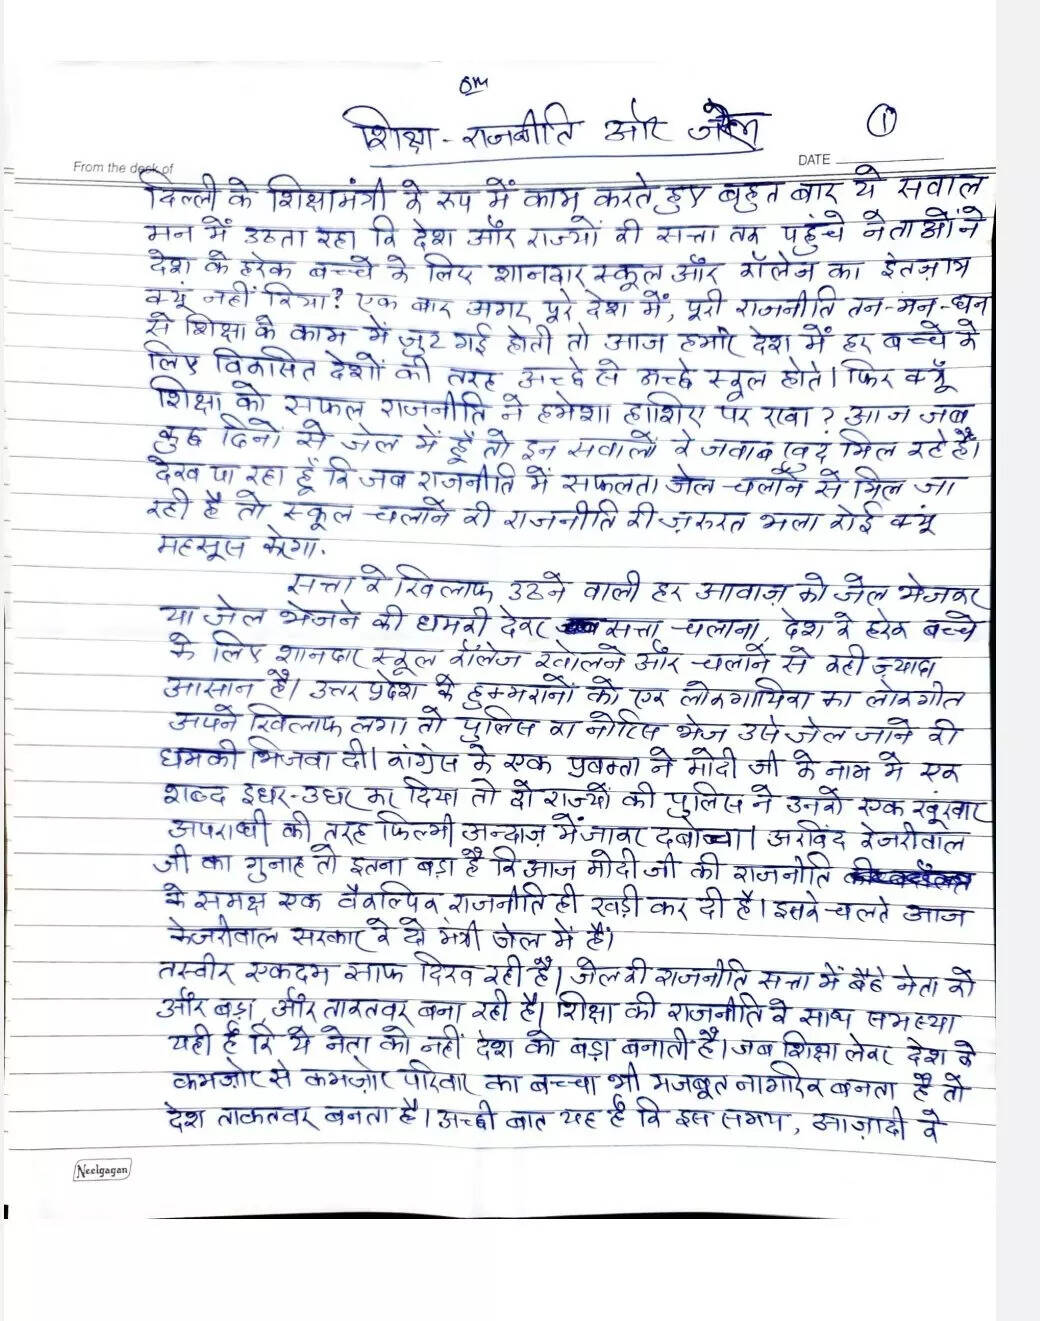 ॐ
शिक्षा - राजनीति और जेल
1
From the desk of
DATE
दिल्ली के शिक्षामंत्री के रूप में काम करते हुए बहुत बार ये सवाल
मन में उठता रहा कि देश और राज्यों की सत्ता तक पहुंचे नेताओं ने
देश के हरेक बच्चे के लिए शानदार स्कूल और कॉलेज का इंतज़ाम
क्यूं नहीं किया? एक बार अगर पूरे देश में, पूरी राजनीति तन-मन-धन
से शिक्षा के काम में जुट गई होती तो आज हमारे देश में हर बच्चे के
लिए विकसित देशों की तरह अच्छे से अच्छे स्कूल होते। फिर क्यूँ
शिक्षा को सफल राजनीति ने हमेशा हाशिए पर रखा? आज जब
कुछ दिनों से जेल में हूँ तो इन सवालों के जवाब खुद मिल रहे हैं।
देख पा रहा हूँ कि जब राजनीति में सफलता जेल चलाने से मिल जा
रही है तो स्कूल चलाने की राजनीति की ज़रुरत भला कोई क्यूं
महसूस करेगा.
सत्ता के खिलाफ उठने वाली हर आवाज़ को जेल भेजकर
या जेल भेजने की धमकी देकर सत्ता चलाना, देश के हरेक बच्चे
के लिए शानदार स्कूल कॉलेज खोलने और चलाने से कही ज़्यादा
आसान है। उत्तर प्रदेश के हुक्मरानों को एक लोकगायिका का लोकगीत
अपने खिलाफ लगा तो पुलिस का नोटिस भेज उसे जेल जाने की
धमकी भिजवा दी। कांग्रेस के एक प्रवक्ता ने मोदी जी के नाम में एक
शब्द इधर-उधर कर दिया तो दो राज्यों की पुलिस ने उनको एक खूंखार
अपराधी की तरह फिल्मी अन्दाज़ में जाकर दबोचा। अरविंद केजरीवाल
जी का गुनाह तो इतना बड़ा है कि आज मोदी जी की राजनीति
के समक्ष एक वैकल्पिक राजनीति ही खड़ी कर दी है। इसके चलते आज
केजरीवाल सरकार के दो मंत्री जेल में हैं।
तस्वीर एकदम साफ दिख रही है। जेल की राजनीति सत्ता में बैठे नेता को
और बड़ा, और ताकतवर बना रही है। शिक्षा की राजनीति के साथ समस्या
यही है कि ये नेता को नहीं देश को बड़ा बनाती है। जब शिक्षा लेकर देश के
कमज़ोर से कमज़ोर परिवार का बच्चा भी मजबूत नागरिक बनता है तो
देश ताकतवर बनता है। अच्छी बात यह है कि इस समय, आज़ादी के
Neelgagan